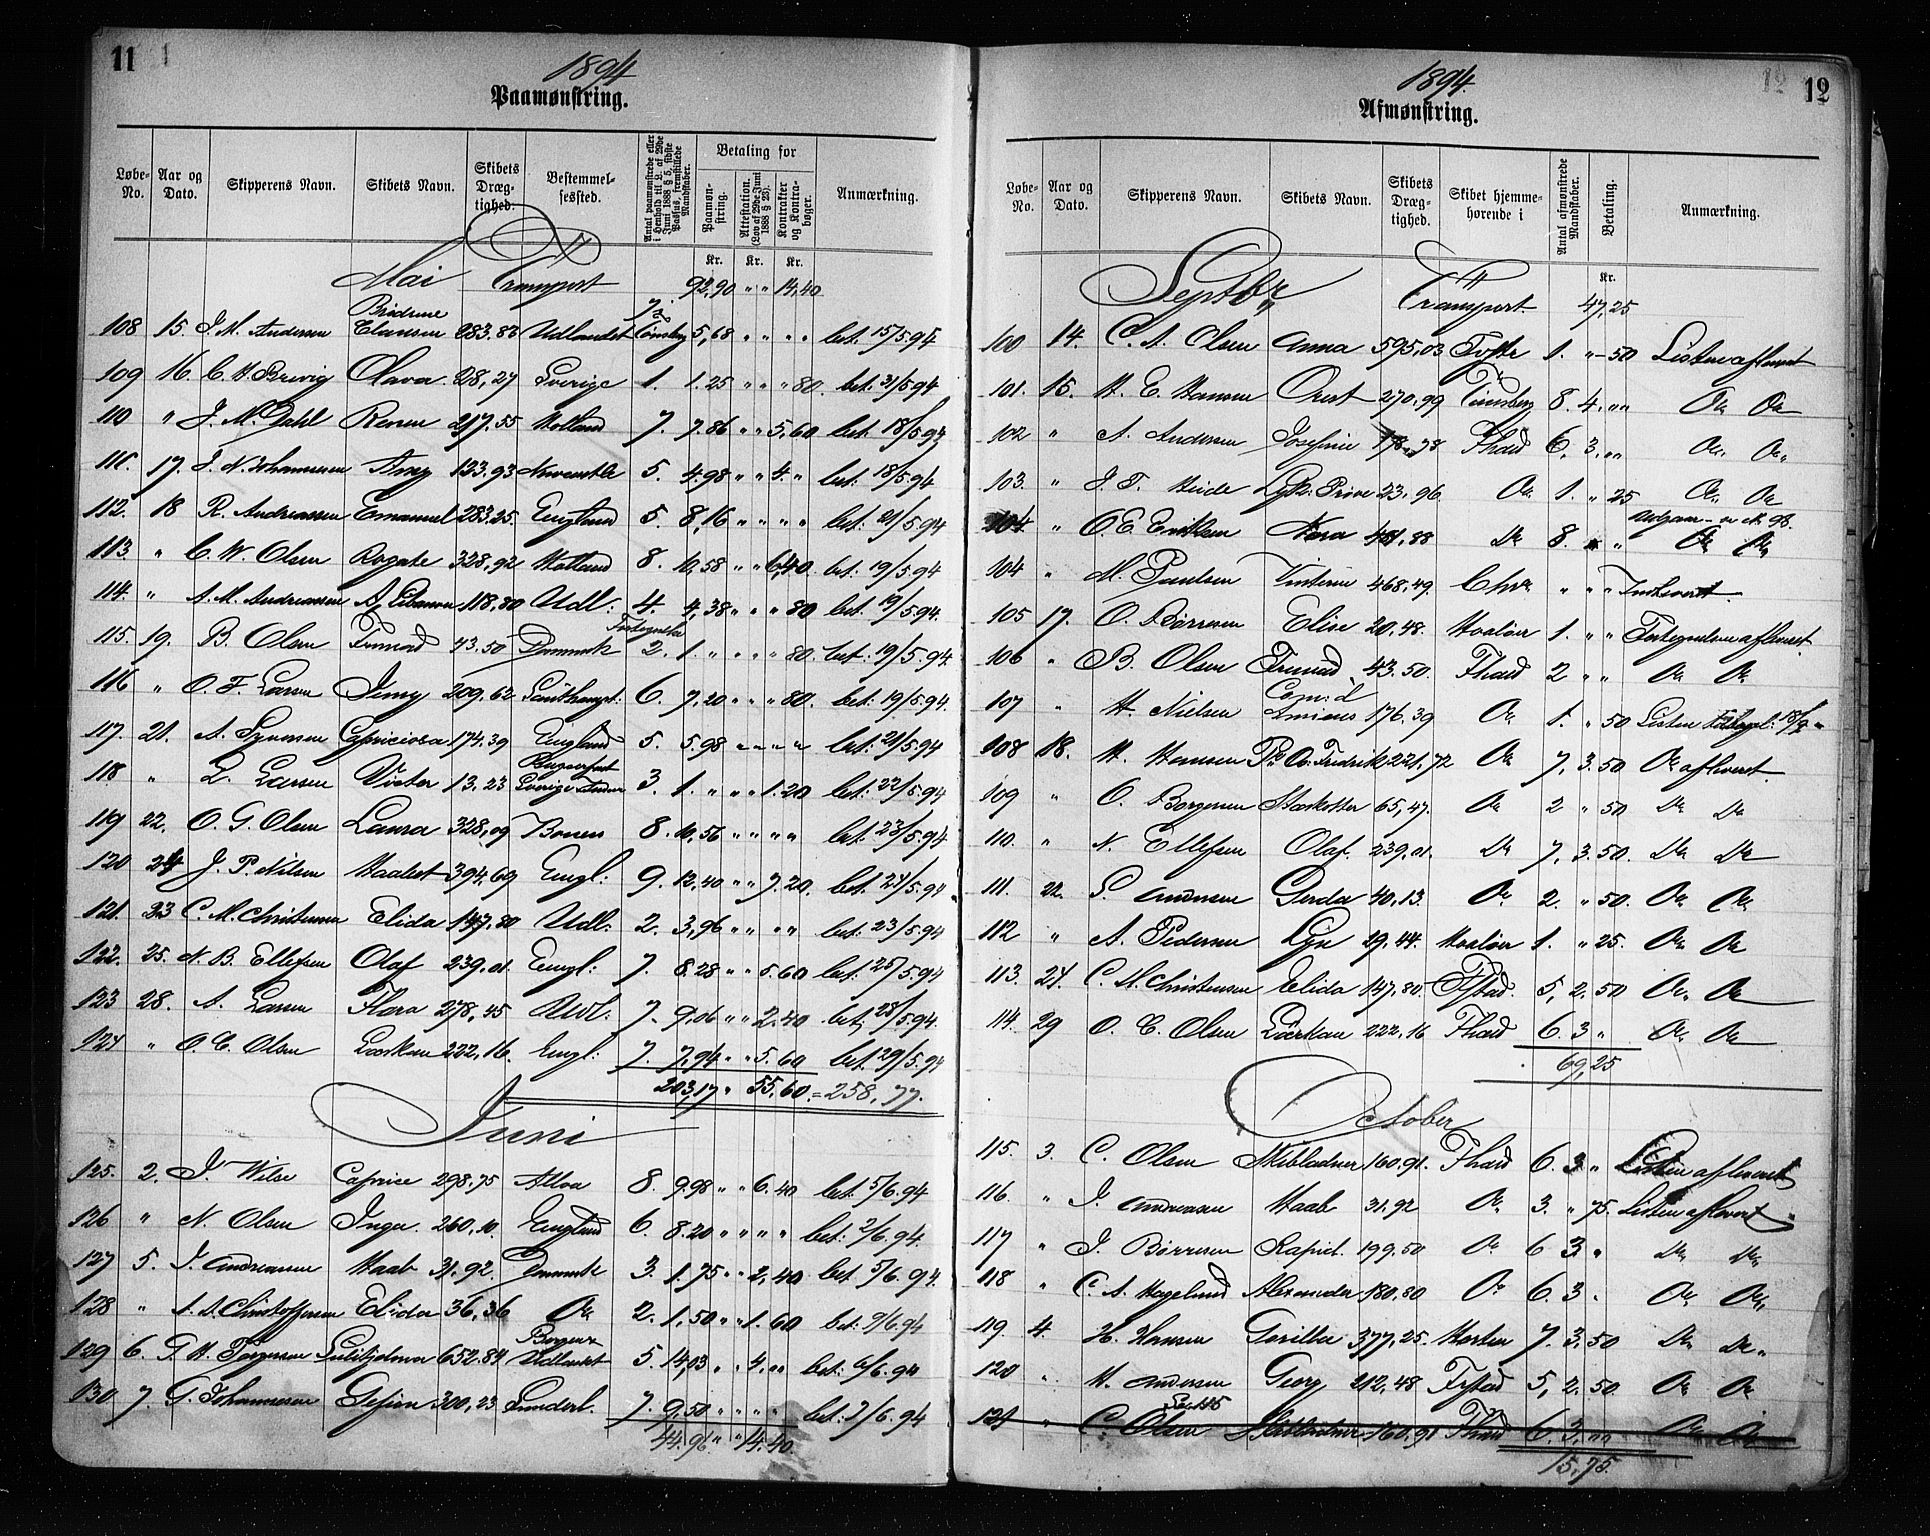 11
1894
Paamønstring.
Løbe-No. Aar og Dato. Skipperens Navn. Skibets Navn. Skibets Dræg-tighed. Bestemmel-sessted. Antal paamønstrede eller i Henhold til L. af 29de Juni 1888 § 5, sidste Passus, fremstillede Mandskaber. Betaling for Paamøn-string. Attestation. (Lov af 29de Juni 1888 § 23). Kontrakter og Kontra-bøger. Anmærkning.
Kr. Kr. Kr.
Mai Transport 92,90 " " 14,40
108 15. J. M. Andersen Brødrene Clausen 283.83 Udlandet Tønsberg 5,68 " " " " bet. 15/5.94
109 16. C. H. Brevig Olava 28,27 Sverige 1. 1.25 " " " 80. bet. 31/5.94
110 " J. M. Dahl Reven 217.55 Holland 7. 7.86 " " 5,60 bet. 18/5.94
111. 17. J. N. Johannesen Amy 123.93 Newcastle 5. 4.98 " " 4. " bet. 18/5.94
112. 18 R. Andreassen Emanuel 283.35 England 5. 8,16 " " " " bet. 21/5.94
113. " C. W. Olsen Rogate 328,92 Holland 8. 10,58 " " 6,40 bet. 19/5.94
114. " A. M. Andreassen Libanon 118,80 Udl: 4. 4,38 " " " 80 bet. 19/5.94.
115. 19. B. Olsen Fremad 43.50 Danmark 2. 1. " " " " 80. bet. 19/5.94.
116 " O. F. Larsen Jenny 209,62 Southampt: 6. 7,20 " " " 80. bet. 19/5.94.
117. 21. A. Synnesen Capriciosa 174.39 England 5. 5.98 " " " " bet. 21/5.94
118 " L. Larsen Victor 13.23 Sverige 3. 1. " " " 1.20 bet. 22/5.94
119 22. O. G. Olsen Laura 328,09 Boness 8. 10,56 " " " " bet. 23/5.94
120 24 J. P. Nilsen Haabet 394,69 Engl: 9. 12,40 " " 7.20. bet. 24/5.94
121. 23 C. M. Christensen Elida 147,80 Udl. 2. 3,96 " " " " bet. 23/5.94
122. 25. N. B. Ellefsen Olaf 239.01. Engl: 7. 8.28 " " 5.60 bet. 25/5.94
123 28. A. Larsen Flora 278,45 Udl. 7. 9,06 " " 2,40 bet. 28/5.94.
124 " O. C. Olsen 222,16. Engl: 7. 7,94 " " 5.60 bet. 29/5.94
203,17 " 55,60. = 258,77.
Juni
125. 2. J. Wilse Caprice 298.75 Alloa 8. 9.98 " " 6.40 bet. 5/6.94
126 " N. Olsen Inga 260,10. England 6. 8.20 " " " " bet. 2/6.94.
127 5. J. Andreassen Haab 31.92. Danmark 3. 1.75 " " 2,40 bet. 5/6.94.
128 " A. A. Christoffersen Elida 36,36 Do 2. 1,50 " " 1.60 bet. 9/6.94
129 6. G. H. Torgersen Sulitjelma 652.84 Udlandet 5. 14,03 " " 4,00 bet. 6/6.94
130 7. G. Johannesen Gefion 300,23 Sunderl. 7. 9,50 " " " " bet. 7/6.94
44.96 " " 14.40
12
1894.
Afmønstring.
Løbe-No. Aar og Dato. Skipperens Navn. Skibets Navn. Skibets Dræg-tighed. Skibet hjemme-hørende i Antal afmønstrede Mandskaber. Betaling. Anmærkning.
Kr.
Septbr Transport 47,25
100 14. C. A. Olsen Anna 595,03 1. " 50 Listen afleveret
101. 15. H. E. Hansen Orest 270.99 Tønsberg 8. 4. " " Do Do
102 " A. Andersen Josefine 178,78 Fhald 6. 3. " " Do Do
103. " J. T. Heide Prøve 23,96 Do 1. " 25 Do Do
Udgaar - se N. 98.
104. " O. E. Eriksen Nora 401,88 Do 8. " " Do Do
104 " M. Paulsen 468,49. Chra " " "
105 17. O. Børresen Elise 20,48. Hvaløer 1. " " Fortegnelsen afleveret
106 " B. Olsen Fremad 43.50. Fhald 2 " " Do Do
107 " H. Nielsen 176.39 Do 1. " 50 Listen
108 18. H. Hansen Pr. Ov. Fredrik 221.72 Do 7, 3.50 Do afleveret
109 " O. Borgersen Stærkodder 65,47. Do 2 " 50 Do Do
110. " N. Ellefsen Olaf 239,01. Do 7, 3.50. Do Do
111. 22. S. Andersen Gerda 40,13. Do 2. " 50. Do Do
112 " A. Pedersen Lyn 29,44. Hvaløer 1. " 25. Do Do
113. 24. C. M. Christensen Elida 147,80. Fstad. 5, 2,50 Do Do
114. 29 O. C. Olsen 222,16 Fhald 6. 3 " Do Do
69,25
October
115. 3. C. Olsen Skibladner 160.91. Fhald 6. 3 " Listen afleveret
116. " J. Andreassen Haab 31.92 Do 3. " 75. Listen afleveret
117 " J. Børresen Rapid. 199.50 Do 6 3 " Do Do
118 " C. A. Hagelund Alexander 180,80 Do 6. 3 " Do Do
119 4. H. Hansen Gorilla 377,25. Horten 7. 3,50 Do Do
120 " H. Andersen Georg 212,48 Fstad 5, 2.50. Do Do
121 " C. Olsen Skibladner 160.91 Fhald 6. 3,00 Do Do
15,75.